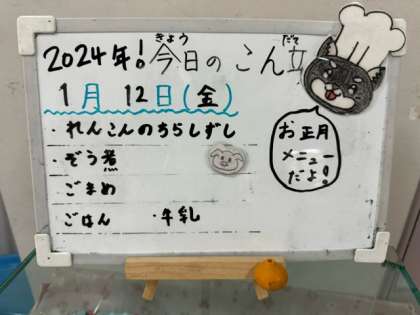 2024年!今日のこん立
きょう
だて
1月 12日(金)
・れんこんのちらしずし
・ぞう煮
ごまめ
ごはん ・牛乳
お正月
メニュー
だよ!